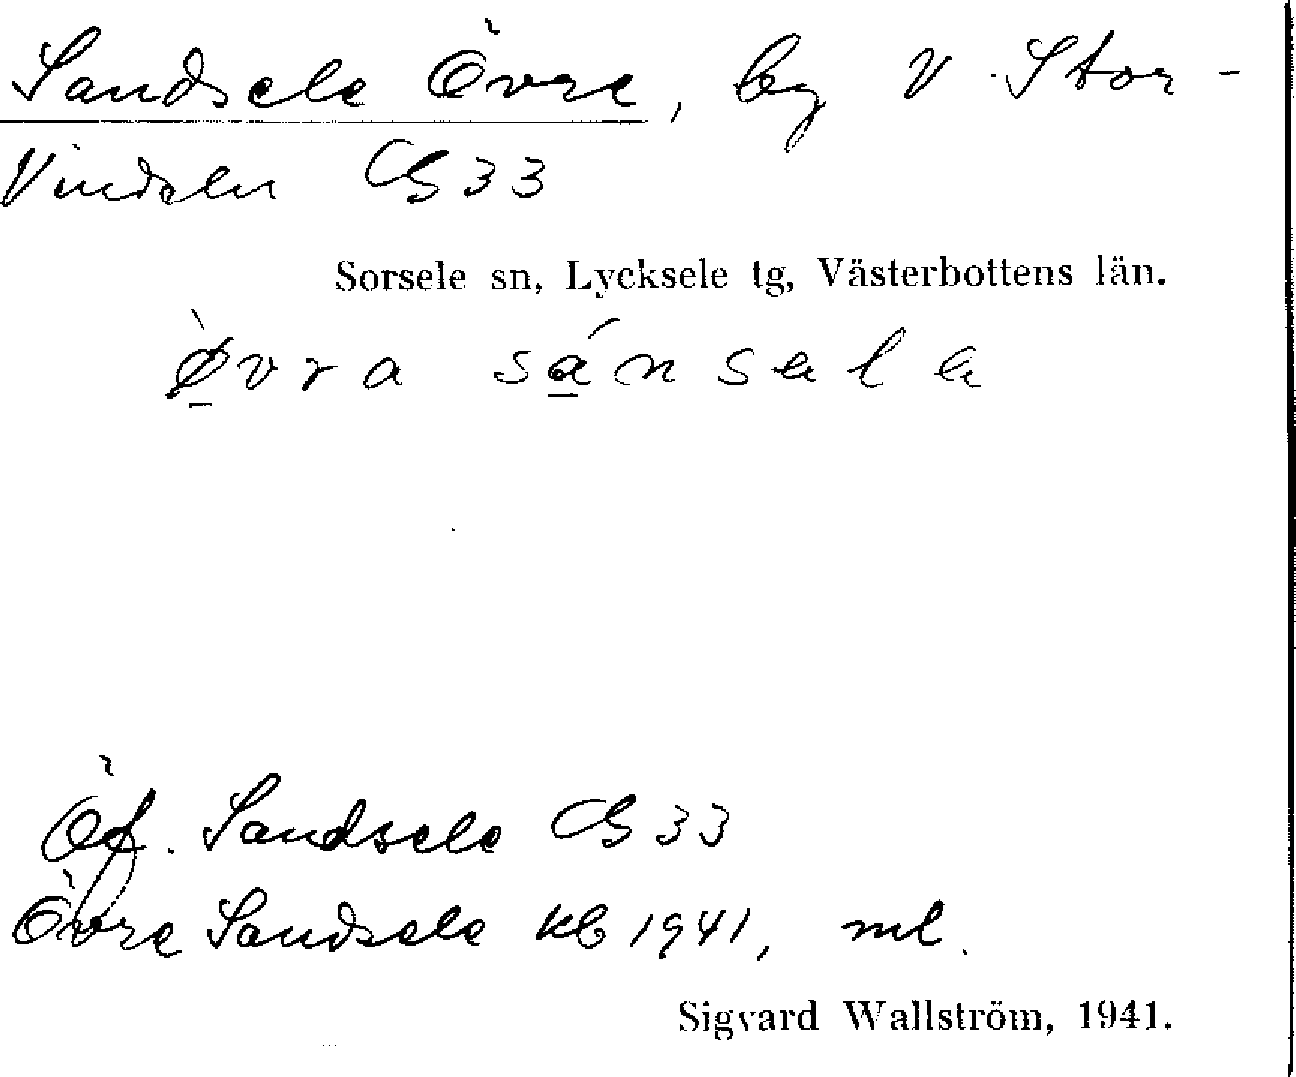 Sandsele Övre, by V Stor-
Vindeln GS 33
Sorsele sn, Lycksele tg, Västerbottens län.
øvra sánsele
Öf. Sandsele GS 33
Övre Sandsele kb 1941, ml.
Sigvard Wallström, 1941.